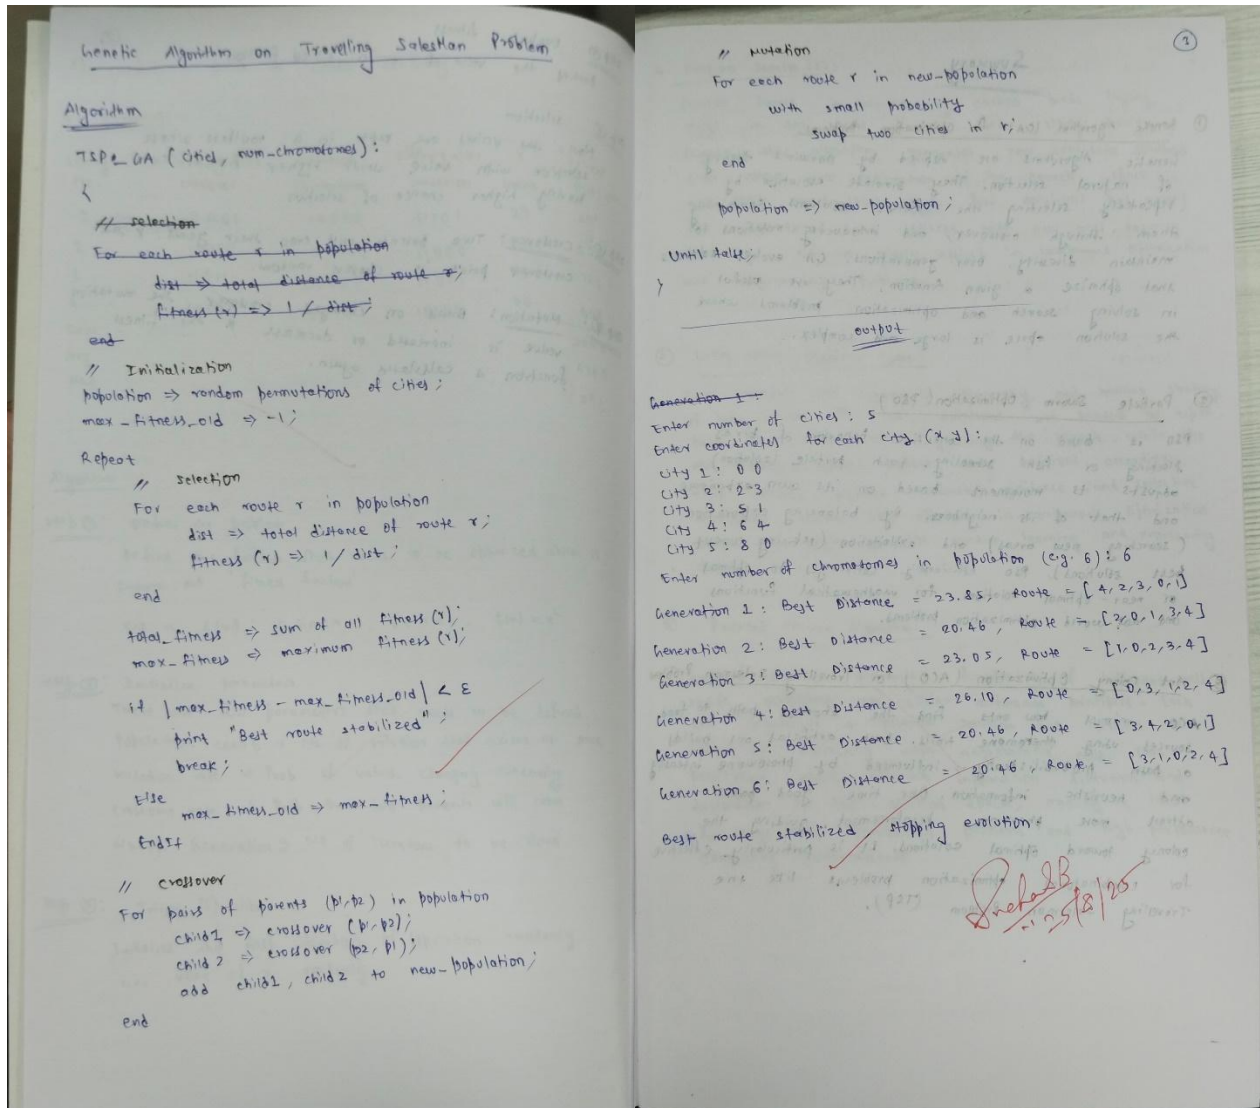 Genetic Algorithm on Travelling SalesMan Problem
Algorithm
TSP_GA (cities, num_chromosomes):
{
// selection
For each route r in population
dist => total distance of route r;
fitness (r) => 1 / dist;
end
// Initialization
population => random permutations of cities;
max_fitness_old => -1;
Repeat
// selection
For each route r in population
dist => total distance of route r;
fitness (r) => 1 / dist;
end
total_fitness => sum of all fitness (r);
max_fitness => maximum fitness (r);
if | max_fitness - max_fitness_old | < ε
print "Best route stabilized";
break;
Else
max_fitness_old => max_fitness;
EndIf
// crossover
For pairs of parents (p1, p2) in population
child1 => crossover (p1, p2);
child2 => crossover (p2, p1);
add child1, child2 to new_population;
end
3
// Mutation
For each route r in new_population
with small probability
swap two cities in r;
end
population => new_population;
Until false;
}
output
Generation 1:
Enter number of cities: 5
Enter coordinates for each city (x y):
City 1: 0 0
City 2: 2 3
City 3: 5 1
City 4: 6 4
City 5: 8 0
Enter number of chromosomes in population (e.g. 6): 6
Generation 1: Best Distance = 23.85, Route = [4, 2, 3, 0, 1]
Generation 2: Best Distance = 20.46, Route = [2, 0, 1, 3, 4]
Generation 3: Best Distance = 23.05, Route = [1, 0, 2, 3, 4]
Generation 4: Best Distance = 26.10, Route = [0, 3, 1, 2, 4]
Generation 5: Best Distance = 20.46, Route = [3, 4, 2, 0, 1]
Generation 6: Best Distance = 20.46, Route = [3, 1, 0, 2, 4]
Best route stabilized stopping evolution.
25/8/25